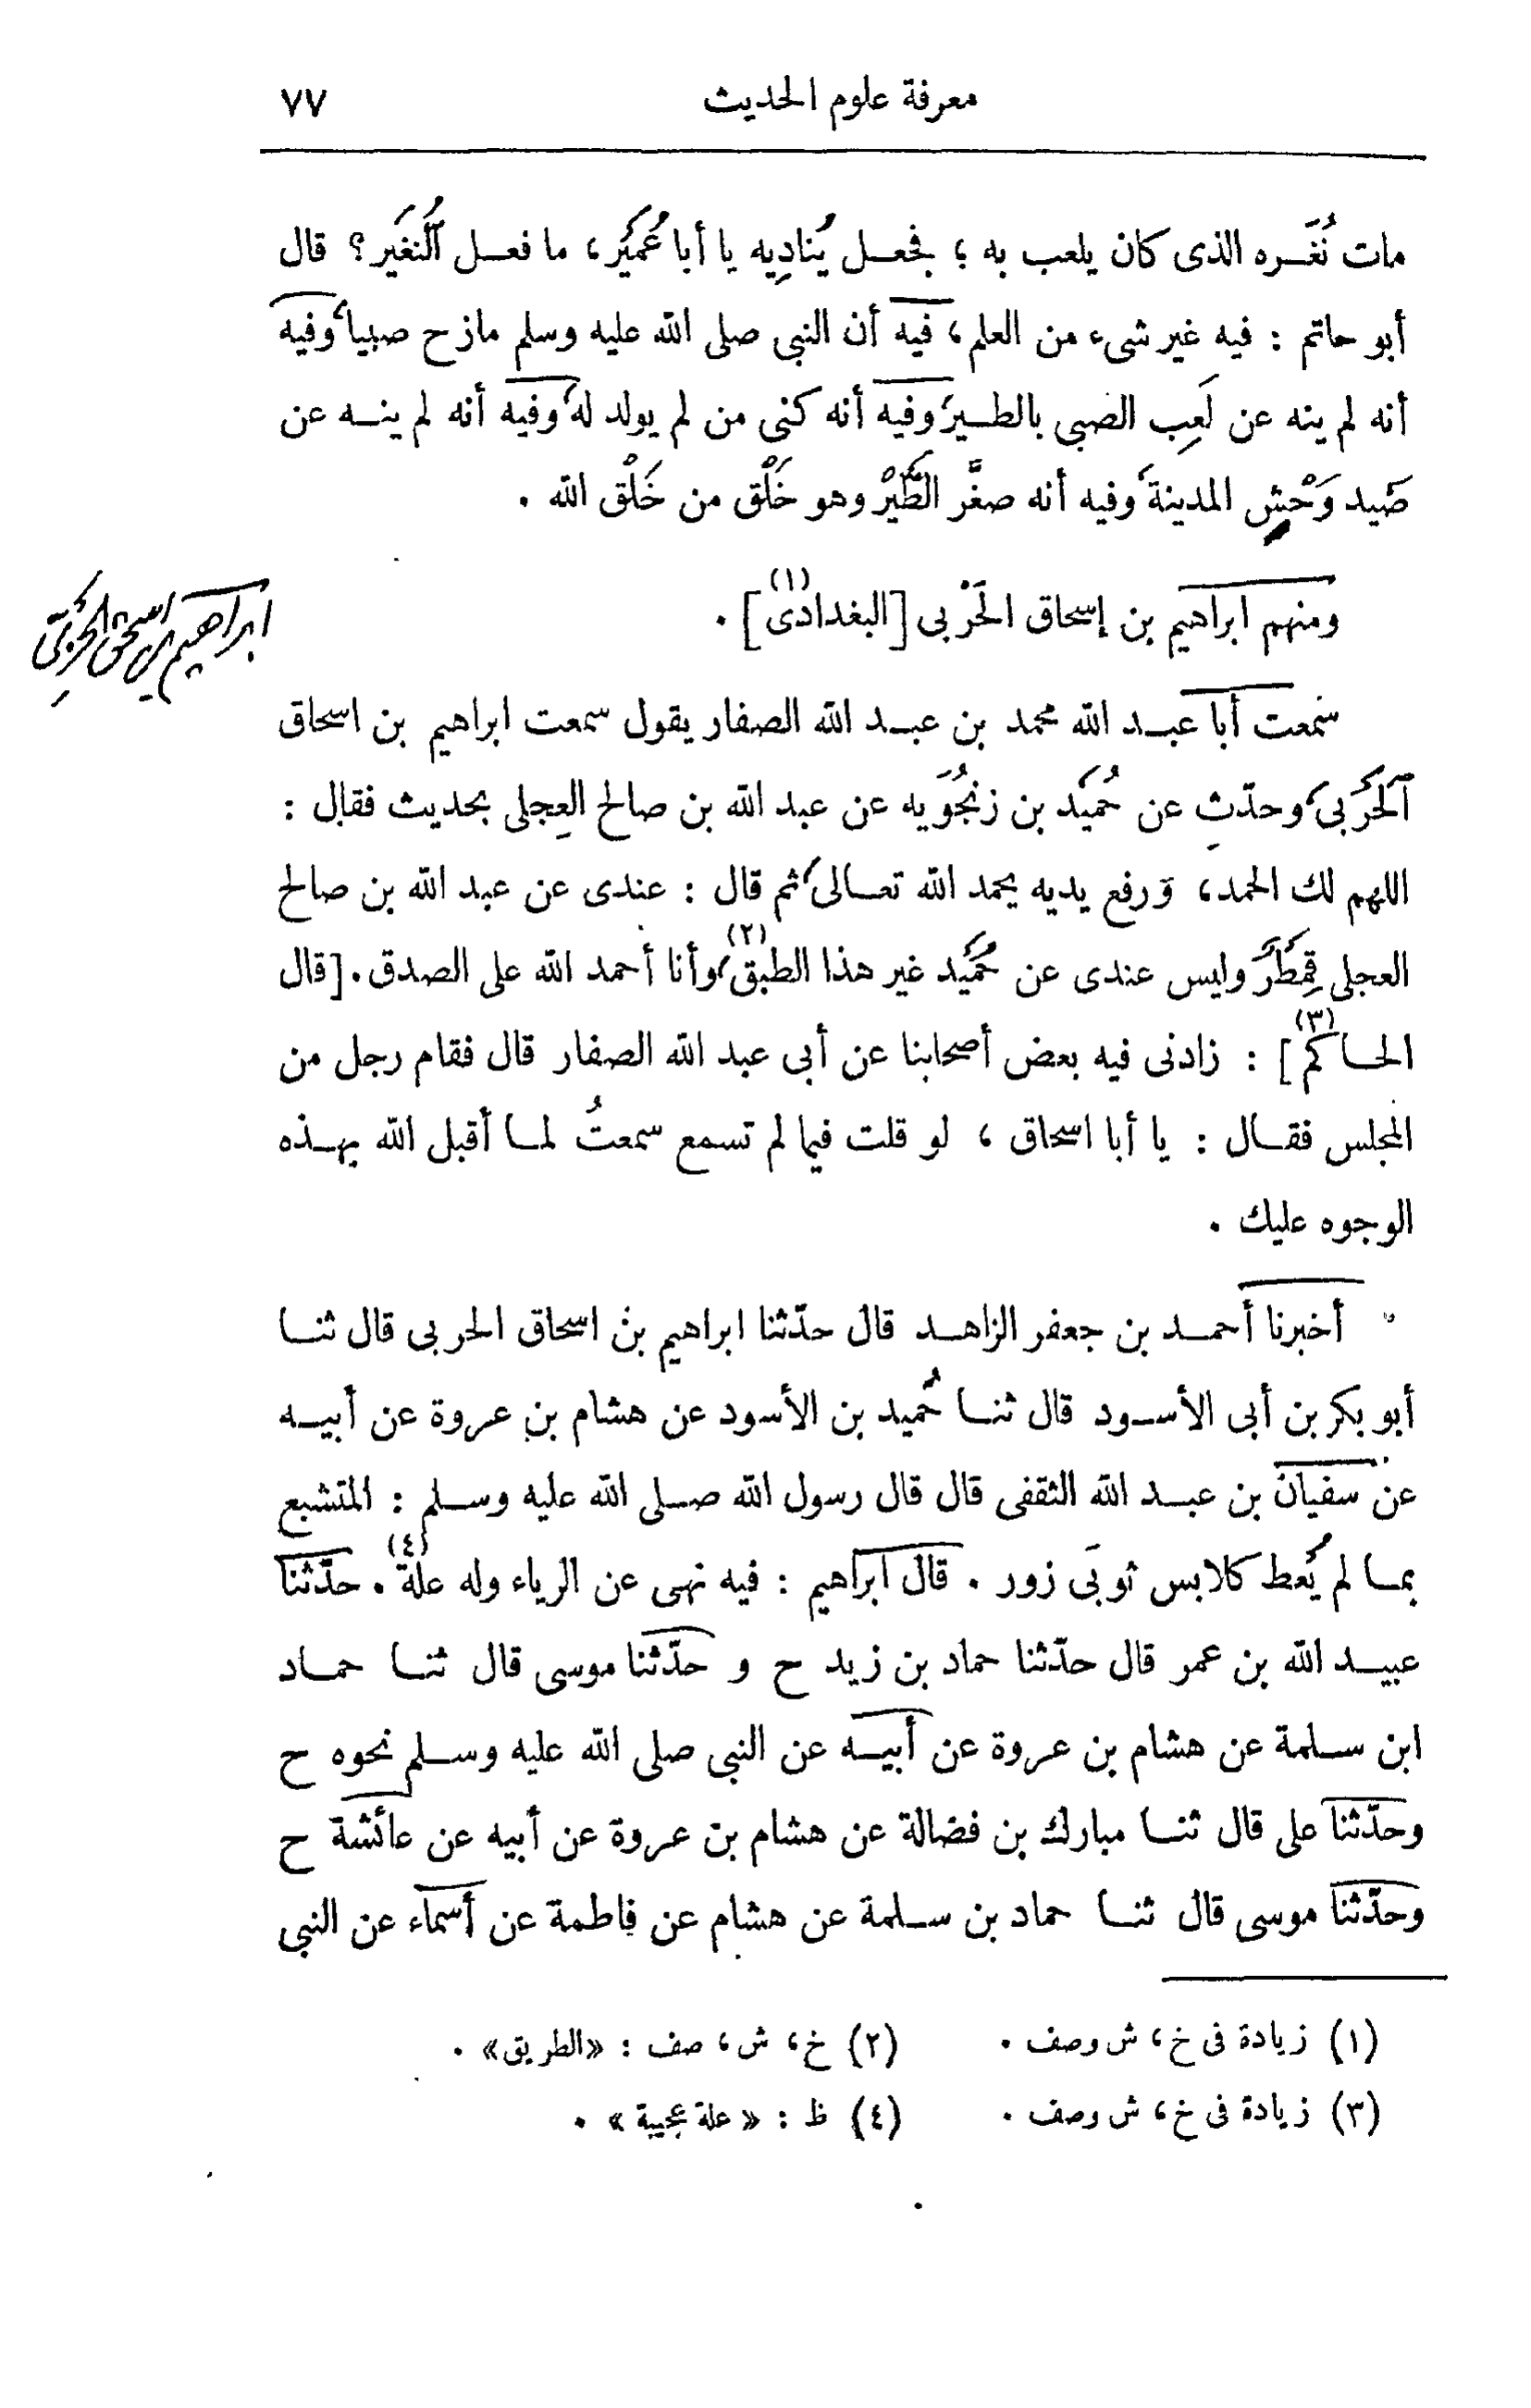 معرفة علوم الحديث ٧٧
مات نُغَره الذى كان يلعب به ؛ فجعل يُنادِيه يا أبا عُمَيْر، ما فعل النُّغَير؟ قال
أبو حاتم : فيه غير شىء من العلم، فيه أن النبى صلى الله عليه وسلم مازح صبيا، وفيه
أنه لم ينه عن لَعِب الصبى بالطير، وفيه أنه كنى من لم يولد له، وفيه أنه لم ينه عن
صَيد وَحْشِ المدينة، وفيه أنه صغَّر الطَّيْرْ وهو خَلْق من خَلْق الله .
ومنهم ابراهيم بن إسحاق الحَرْبى [البغدادى (١)] .
ابراهيم بن اسحق الحَربىّ
سمعت أبا عبد الله محمد بن عبد الله الصفار يقول سمعت ابراهيم بن اسحاق
الحَرْبى، وحدّثِ عن حُمَيْد بن زنجُوَيه عن عبد الله بن صالح العِجلى بحديث فقال :
اللهم لك الحمد، وَرفع يديه يحمد الله تعالى، ثم قال : عندى عن عبد الله بن صالح
العجلى قِمَطْرٌ وليس عندى عن حُمَيْد غير هذا الطبق (٢)، وأنا أحمد الله على الصدق. [قال
الحاكم (٣)] : زادنى فيه بعض أصحابنا عن أبى عبد الله الصفار قال فقام رجل من
المجلس فقال : يا أبا اسحاق ، لو قلت فيما لم تسمع سمعتُ لما أقبل الله بهذه
الوجوه عليك .
أخبرنا أحمد بن جعفر الزاهد قال حدّثنا ابراهيم بن اسحاق الحربى قال ثنا
أبو بكر بن أبى الأسود قال ثنا حُميد بن الأسود عن هشام بن عروة عن أبيه
عن سفيان بن عبد الله الثقفى قال قال رسول الله صلى الله عليه وسلم : المتشبع
بما لم يُعط كلابس ثوبَى زور . قال ابراهيم : فيه نهى عن الرياء وله علة (٤) . حدّثنا
عبيد الله بن عمر قال حدّثنا حماد بن زيد ح و حدّثنا موسى قال ثنا حماد
ابن سلمة عن هشام بن عروة عن أبيه عن النبى صلى الله عليه وسلم نحوه ح
وحدّثنا على قال ثنا مبارك بن فضالة عن هشام بن عروة عن أبيه عن عائشة ح
وحدّثنا موسى قال ثنا حماد بن سلمة عن هشام عن فاطمة عن أسماء عن النبى
(١) زيادة فى خ، ش وصف . (٢) خ، ش، صف : «الطريق» .
(٣) زيادة فى خ، ش وصف . (٤) ظ : « علة عجيبة » .